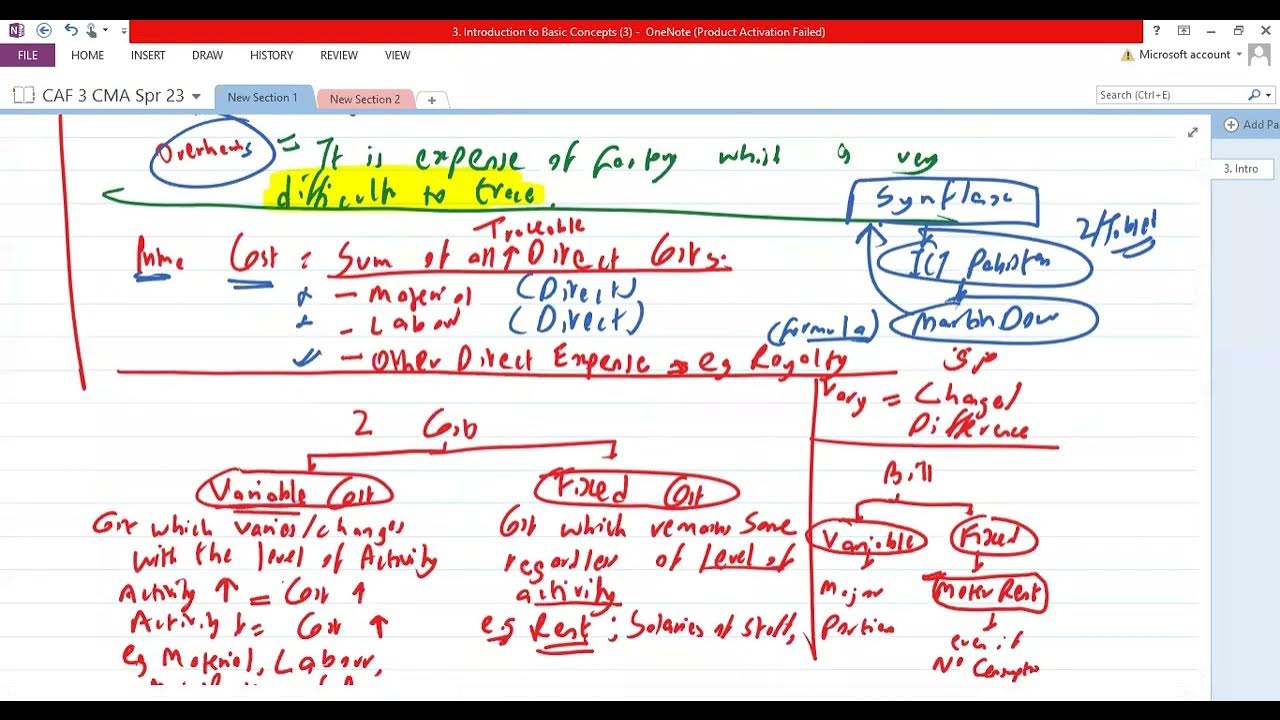 3. Introduction to Basic Concepts (3) - OneNote (Product Activation Failed)
FILE HOME INSERT DRAW HISTORY REVIEW VIEW
Microsoft account
CAF 3 CMA Spr 23
New Section 1
New Section 2
Search (Ctrl+E)
Add Pa
3. Intro
Overheads = It is expense of factory which is very
difficult to trace.
Synflase
2/Tablet
Traceable
Prime Cost = Sum of all Direct Costs.
ICI Pakistan
- Material (Direct)
- Labour (Direct)
(formula)
Martin Dow
- Other Direct Expense eg Royalty
Vary = Change/
Difference
2 Cost
Variable Cost
Cost which varies/changes
with the level of Activity
Activity ↑ = Cost ↑
Activity = Cost ↑
eg Material, Labour,
Fixed Cost
Cost which remains Same
regardless of level of
activity
eg Rent; Salaries of staff,
Bill
Variable
Major
Portion
Fixed
Meter Rent
even if
No Consumption